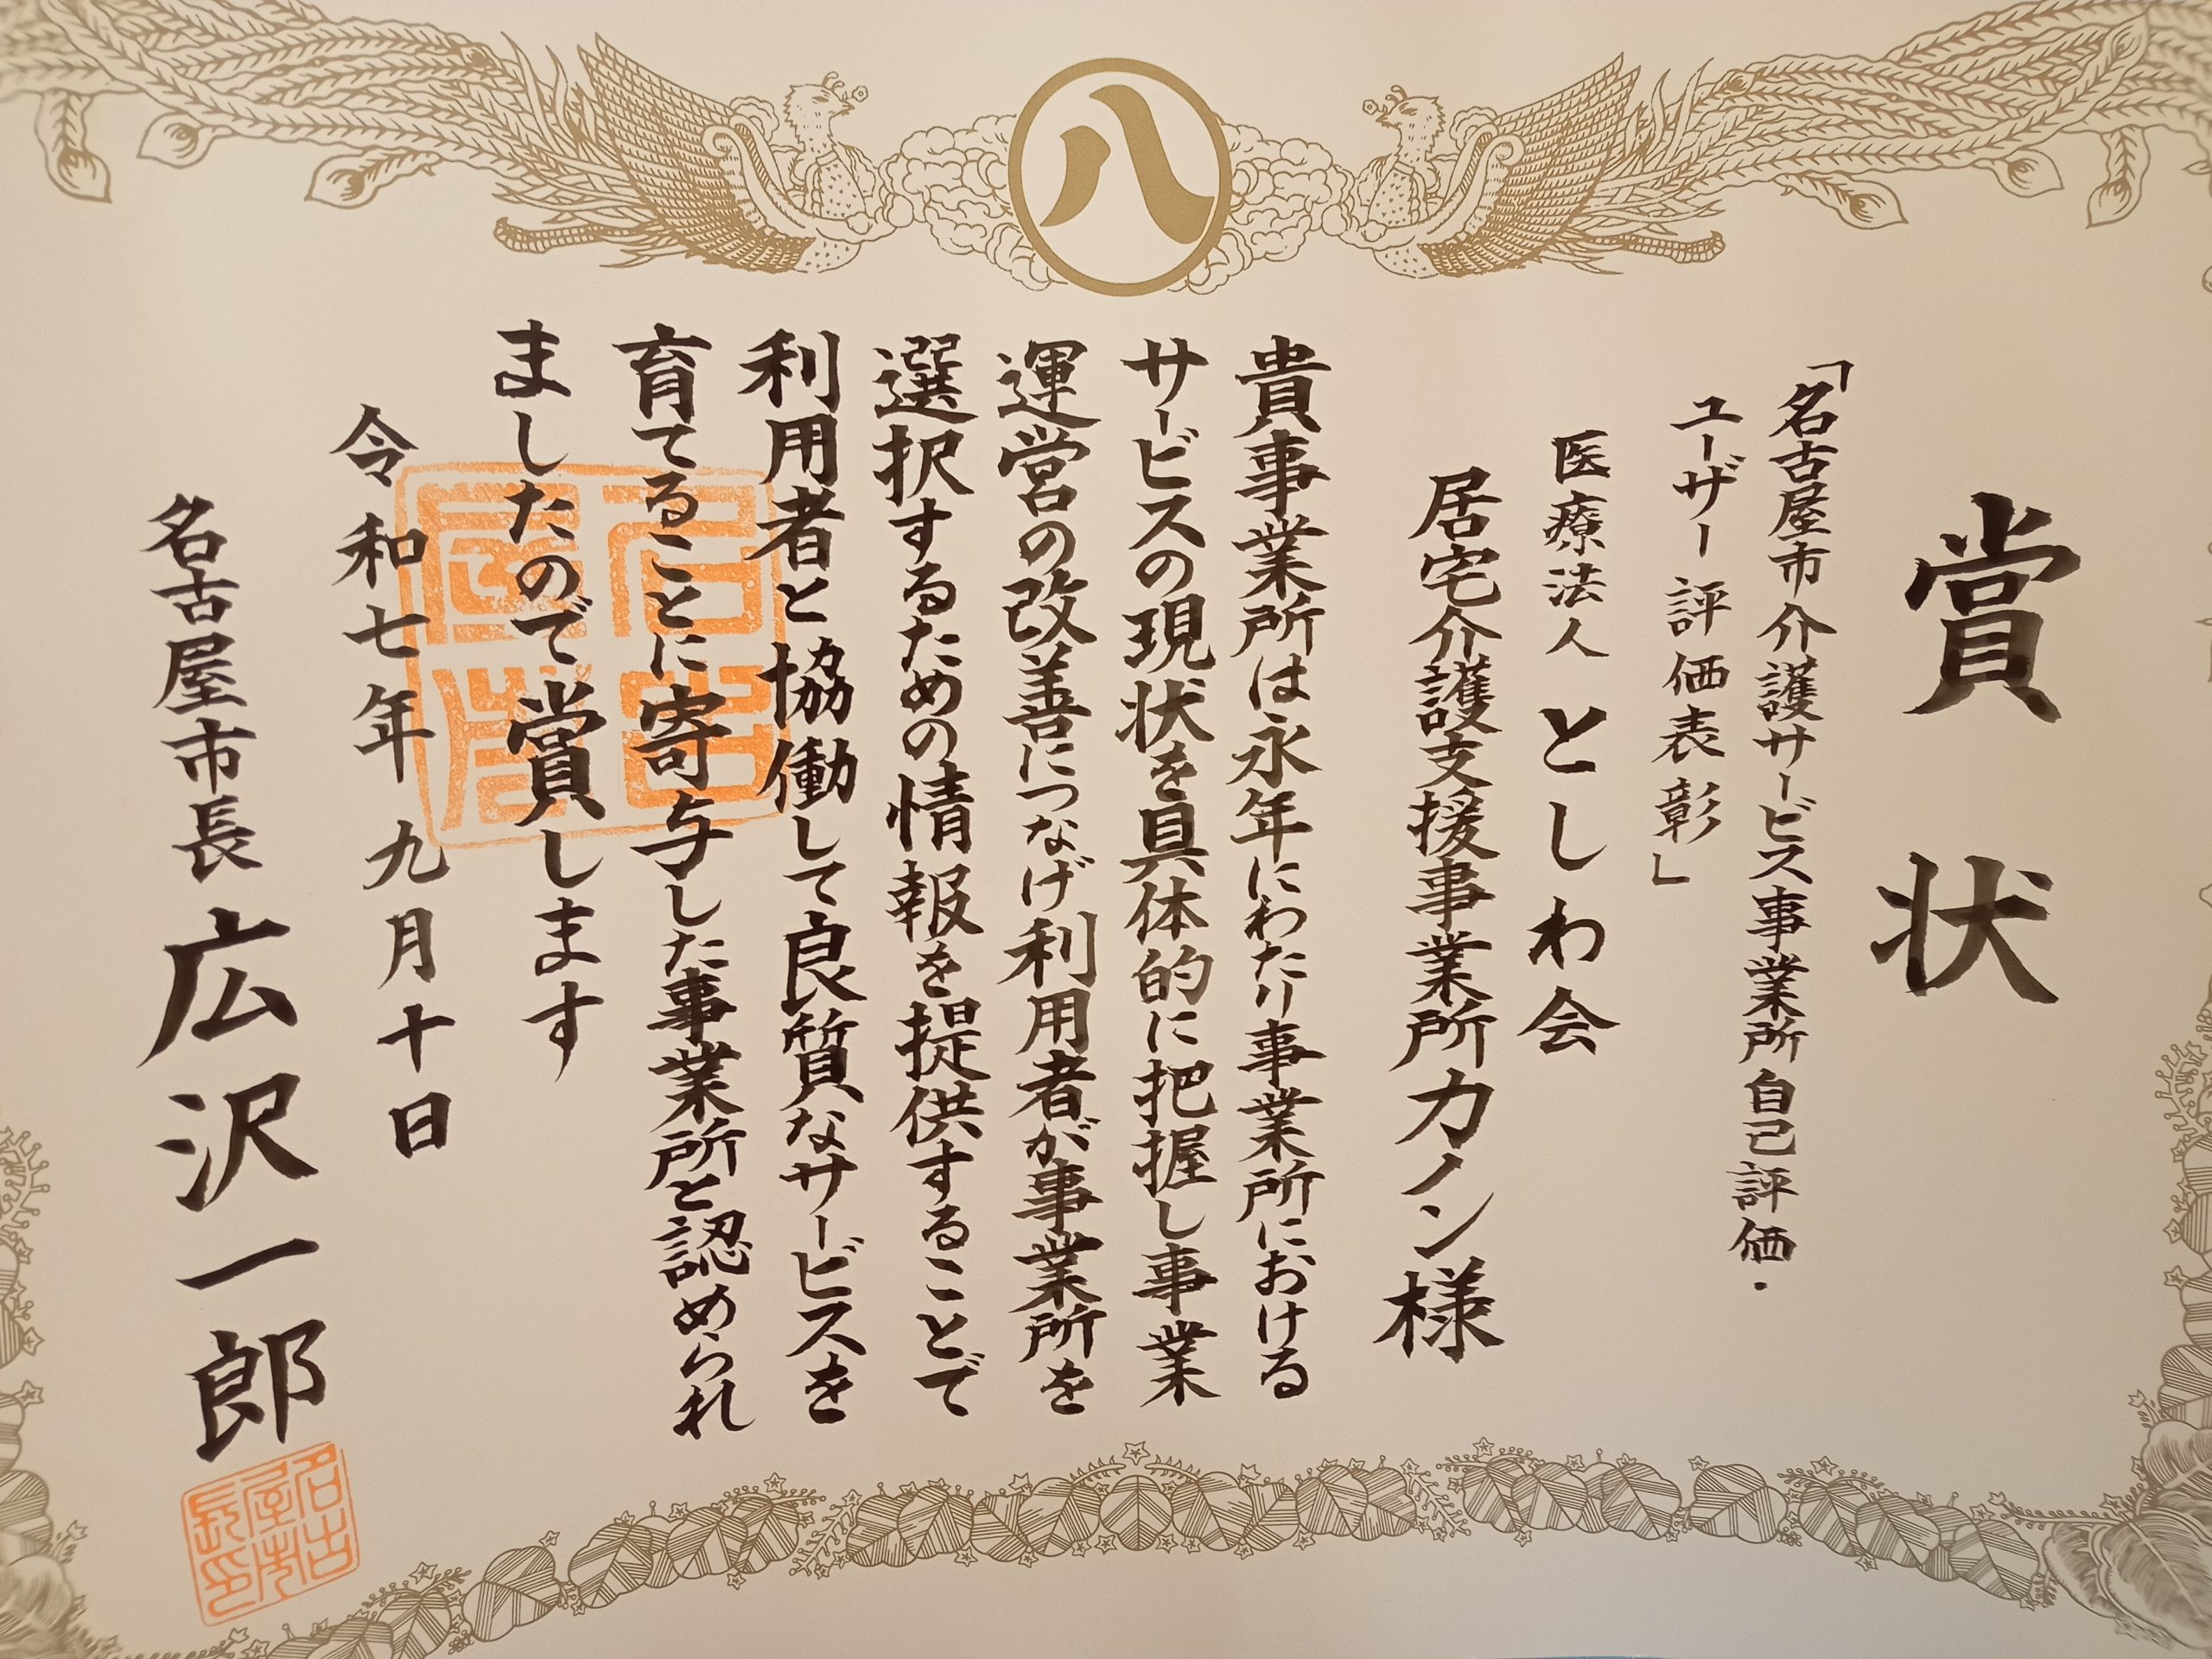 八
賞状
「名古屋市介護サービス事業所自己評価・
ユーザー評価表彰」
医療法人としわ会
居宅介護支援事業所カノン様
貴事業所は永年にわたり事業所における
サービスの現状を具体的に把握し事業
運営の改善につなげ利用者が事業所を
選択するための情報を提供することで
利用者と協働して良質なサービスを
育てることに寄与した事業所と認められ
ましたので賞します
令和七年九月十日
名古屋市長広沢一郎
名古
屋市
長印